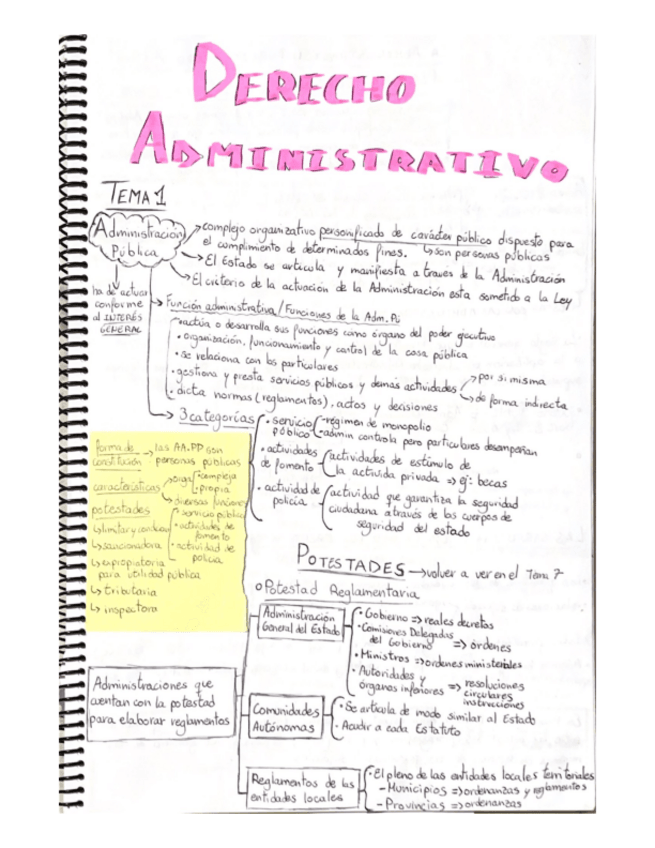 DERECHO
ADMINISTRATIVO
TEMA 1
Administración
Pública
complejo organizativo personificado de carácter público dispuesto para
el complimiento de determinados fines. ↳ son personas públicas
→ El Estado se articula y manifiesta a traves de la Administración
→ El criterio de la actuación de la Administración esta sometido a la Ley
ha de actuar
conforme
al INTERÉS
GENERAL
→ Función administrativa/Funciones de la Adm. P:
• actúa o desarrolla sus funciones como órgano del poder ejecutivo
• organización, funcionamiento y control de la cosa pública
• se relaciona con los particulares
• gestiona y presta servicios públicos y demás actividades
→ por si misma
→ de forma indirecta
• dicta normas (reglamentos), actos y decisiones
→ 3 categorías
• servicio público
- regimen de monopolio
- admin controla pero particulares desempeñan
• actividades de fomento
actividades de estímulo de
la activida privada => ej: becas
• actividad de policía
actividad que garantiza la seguridad
ciudadana a través de los cuerpos de
seguridad del estado
forma de constitución → las AA.PP son
personas públicas
características
→ orga
• compleja
• propia
→ diversas funciones
• servicio público
• actividades de fomento
• actividad de policia
potestades
↳ limitar y
↳ sancionadora
↳ expropiatoria
para utilidad pública
↳ tributaria
↳ inspectora
POTESTADES → volver a ver en el Tema 7
o Potestad Reglamentaria
Administraciones que
cuentan con la potestad
para elaborar reglamentos
Administración
General del Estado
• Gobierno => reales decretos
• Comisiones Delegadas
del Gobierno => órdenes
• Ministros => ordenes ministeriales
• Autoridades y
órganos inferiores => resoluciones
circulares
instrucciones
Comunidades
Autónomas
• Se articula de modo similar al Estado
• Acudir a cada Estatuto
Reglamentos de las
entidades locales
• El pleno de las entidades locales territoriales
- Municipios => ordenanzas y reglamentos
- Provincias => ordenanzas